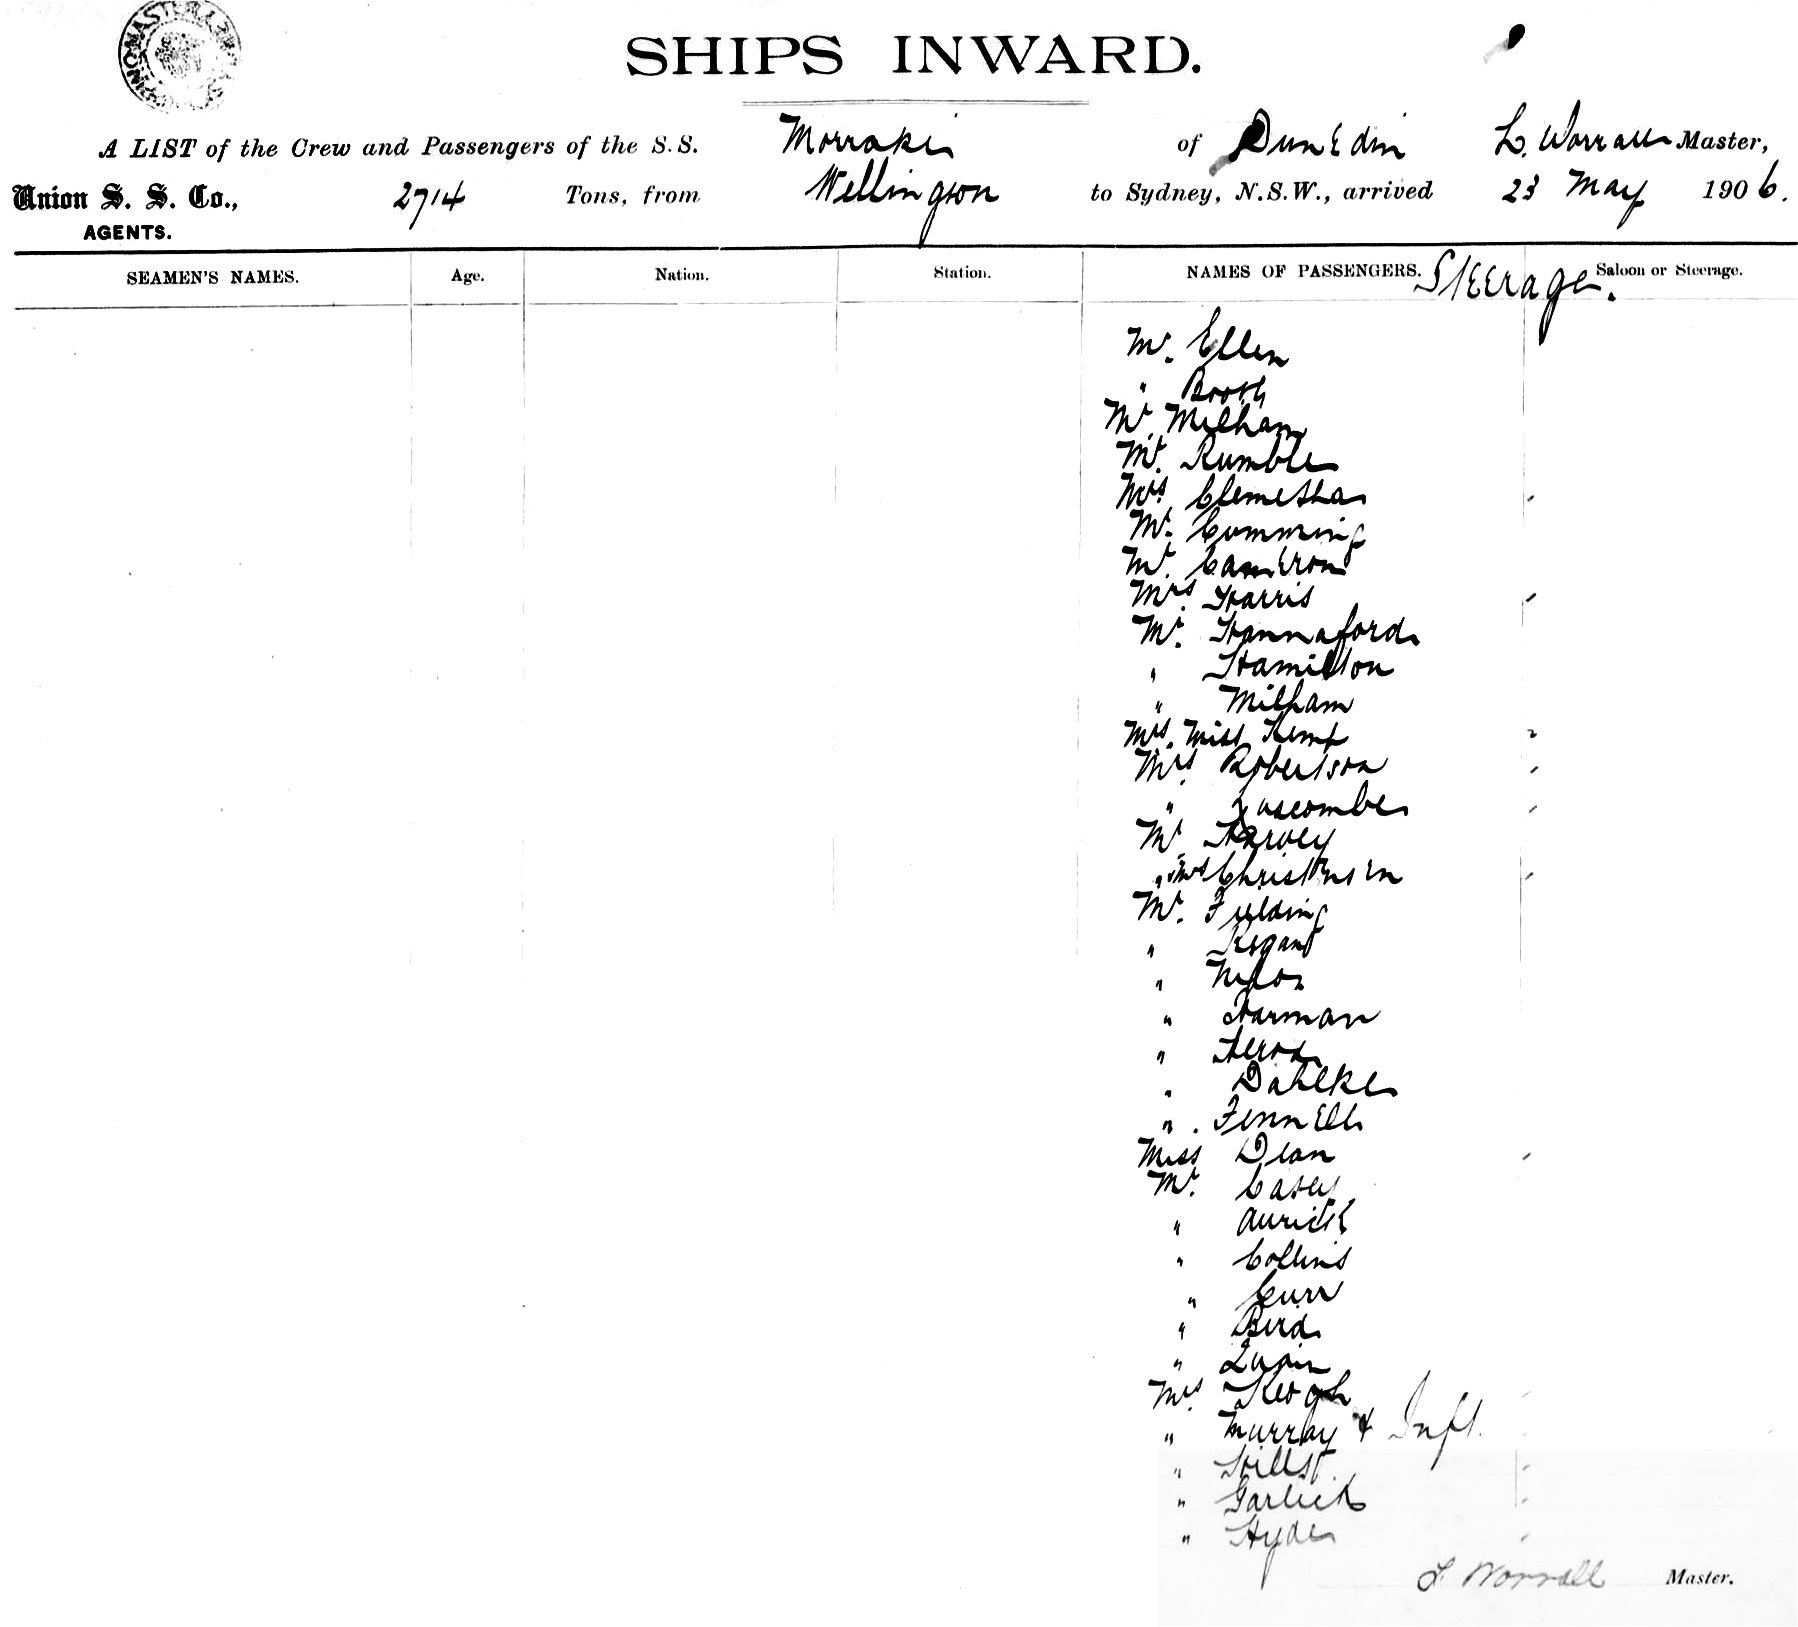 SHIPS INWARD.
A LIST of the Crew and Passengers of the S.S. Morraki of Dunedin L. Worrall Master,
Union S. S. Co., 2714 Tons, from Wellington to Sydney, N.S.W., arrived 23 May 1906.
AGENTS.
SEAMEN'S NAMES. Age. Nation. Station. NAMES OF PASSENGERS. Steerage. Saloon or Steerage.
Mr. Ellen
" Booth
Mr. Milham
Mr. Rumble
Mrs. Clemetha
Mr. Cumming
Mr. Cameron
Mrs. Harris
Mr. Hannaford
" Hamilton
" Milham
Mrs. Miss Kemp
Mrs. Robertson
" Luscombe
Mr. Harvey
" Mrs Christensen
Mr. Fielding
" Regan
"
" Harman
" Herod
" Dahlke
" Fennell
Miss Dean
Mr. Casey
"
" Collins
" Curr
" Bird
" Quain
Mrs. Keogh
" Murray & Inft.
"
" Garlick
" Hyde
L. Worrall Master.